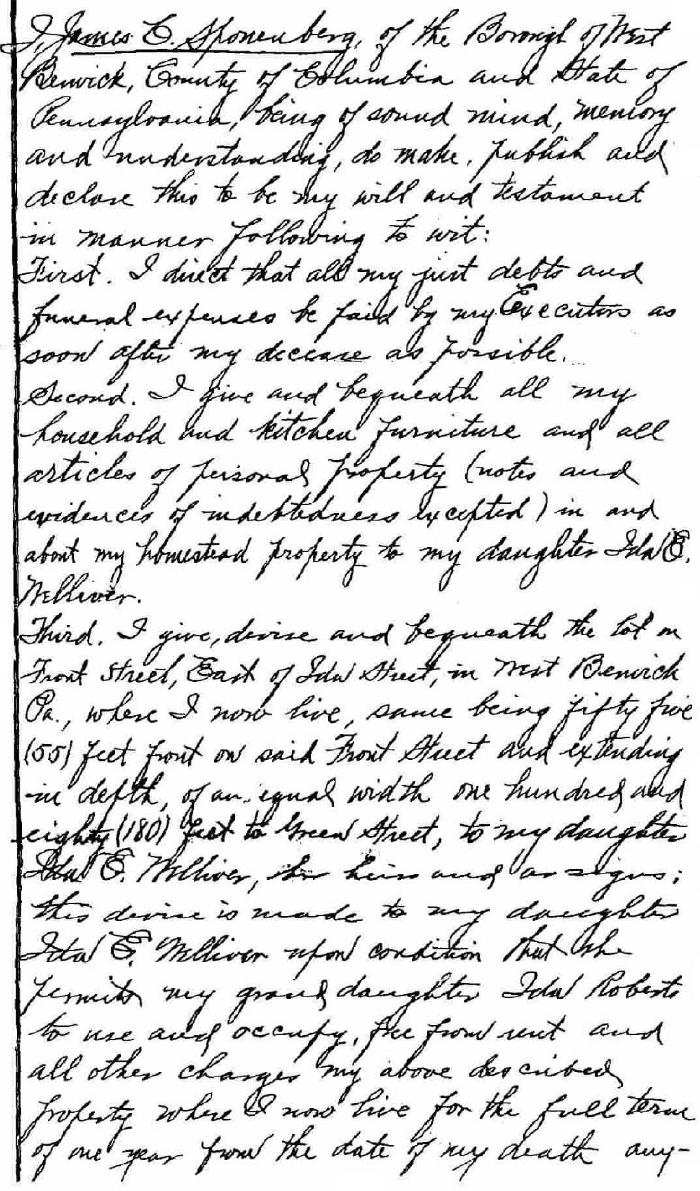 I, James E. Sponenberg, of the Borough of West
Berwick, County of Columbia and State of
Pennsylvania, being of sound mind, memory
and understanding, do make, publish and
declare this to be my will and testament
in manner following to wit:
First. I direct that all my just debts and
funeral expenses be paid by my Executors as
soon after my decease as possible.
Second. I give and bequeath all my
household and kitchen furniture and all
articles of personal property (notes and
evidences of indebtedness excepted) in and
about my homestead property to my daughter Ida E.
Welliver.
Third. I give, devise and bequeath the lot on
Front Street, East of Ida Street, in West Berwick
Pa., where I now live, same being fifty five
(55) feet front on said Front Street and extending
in depth, of an equal width one hundred and
eighty (180) feet to Green Street, to my daughter
Ida E. Welliver, her heirs and assigns;
this devise is made to my daughter
Ida E. Welliver upon condition that she
permits my grand daughter Ida Roberts
to use and occupy, free from rent and
all other charges my above described
property where I now live for the full term
of one year from the date of my death any-